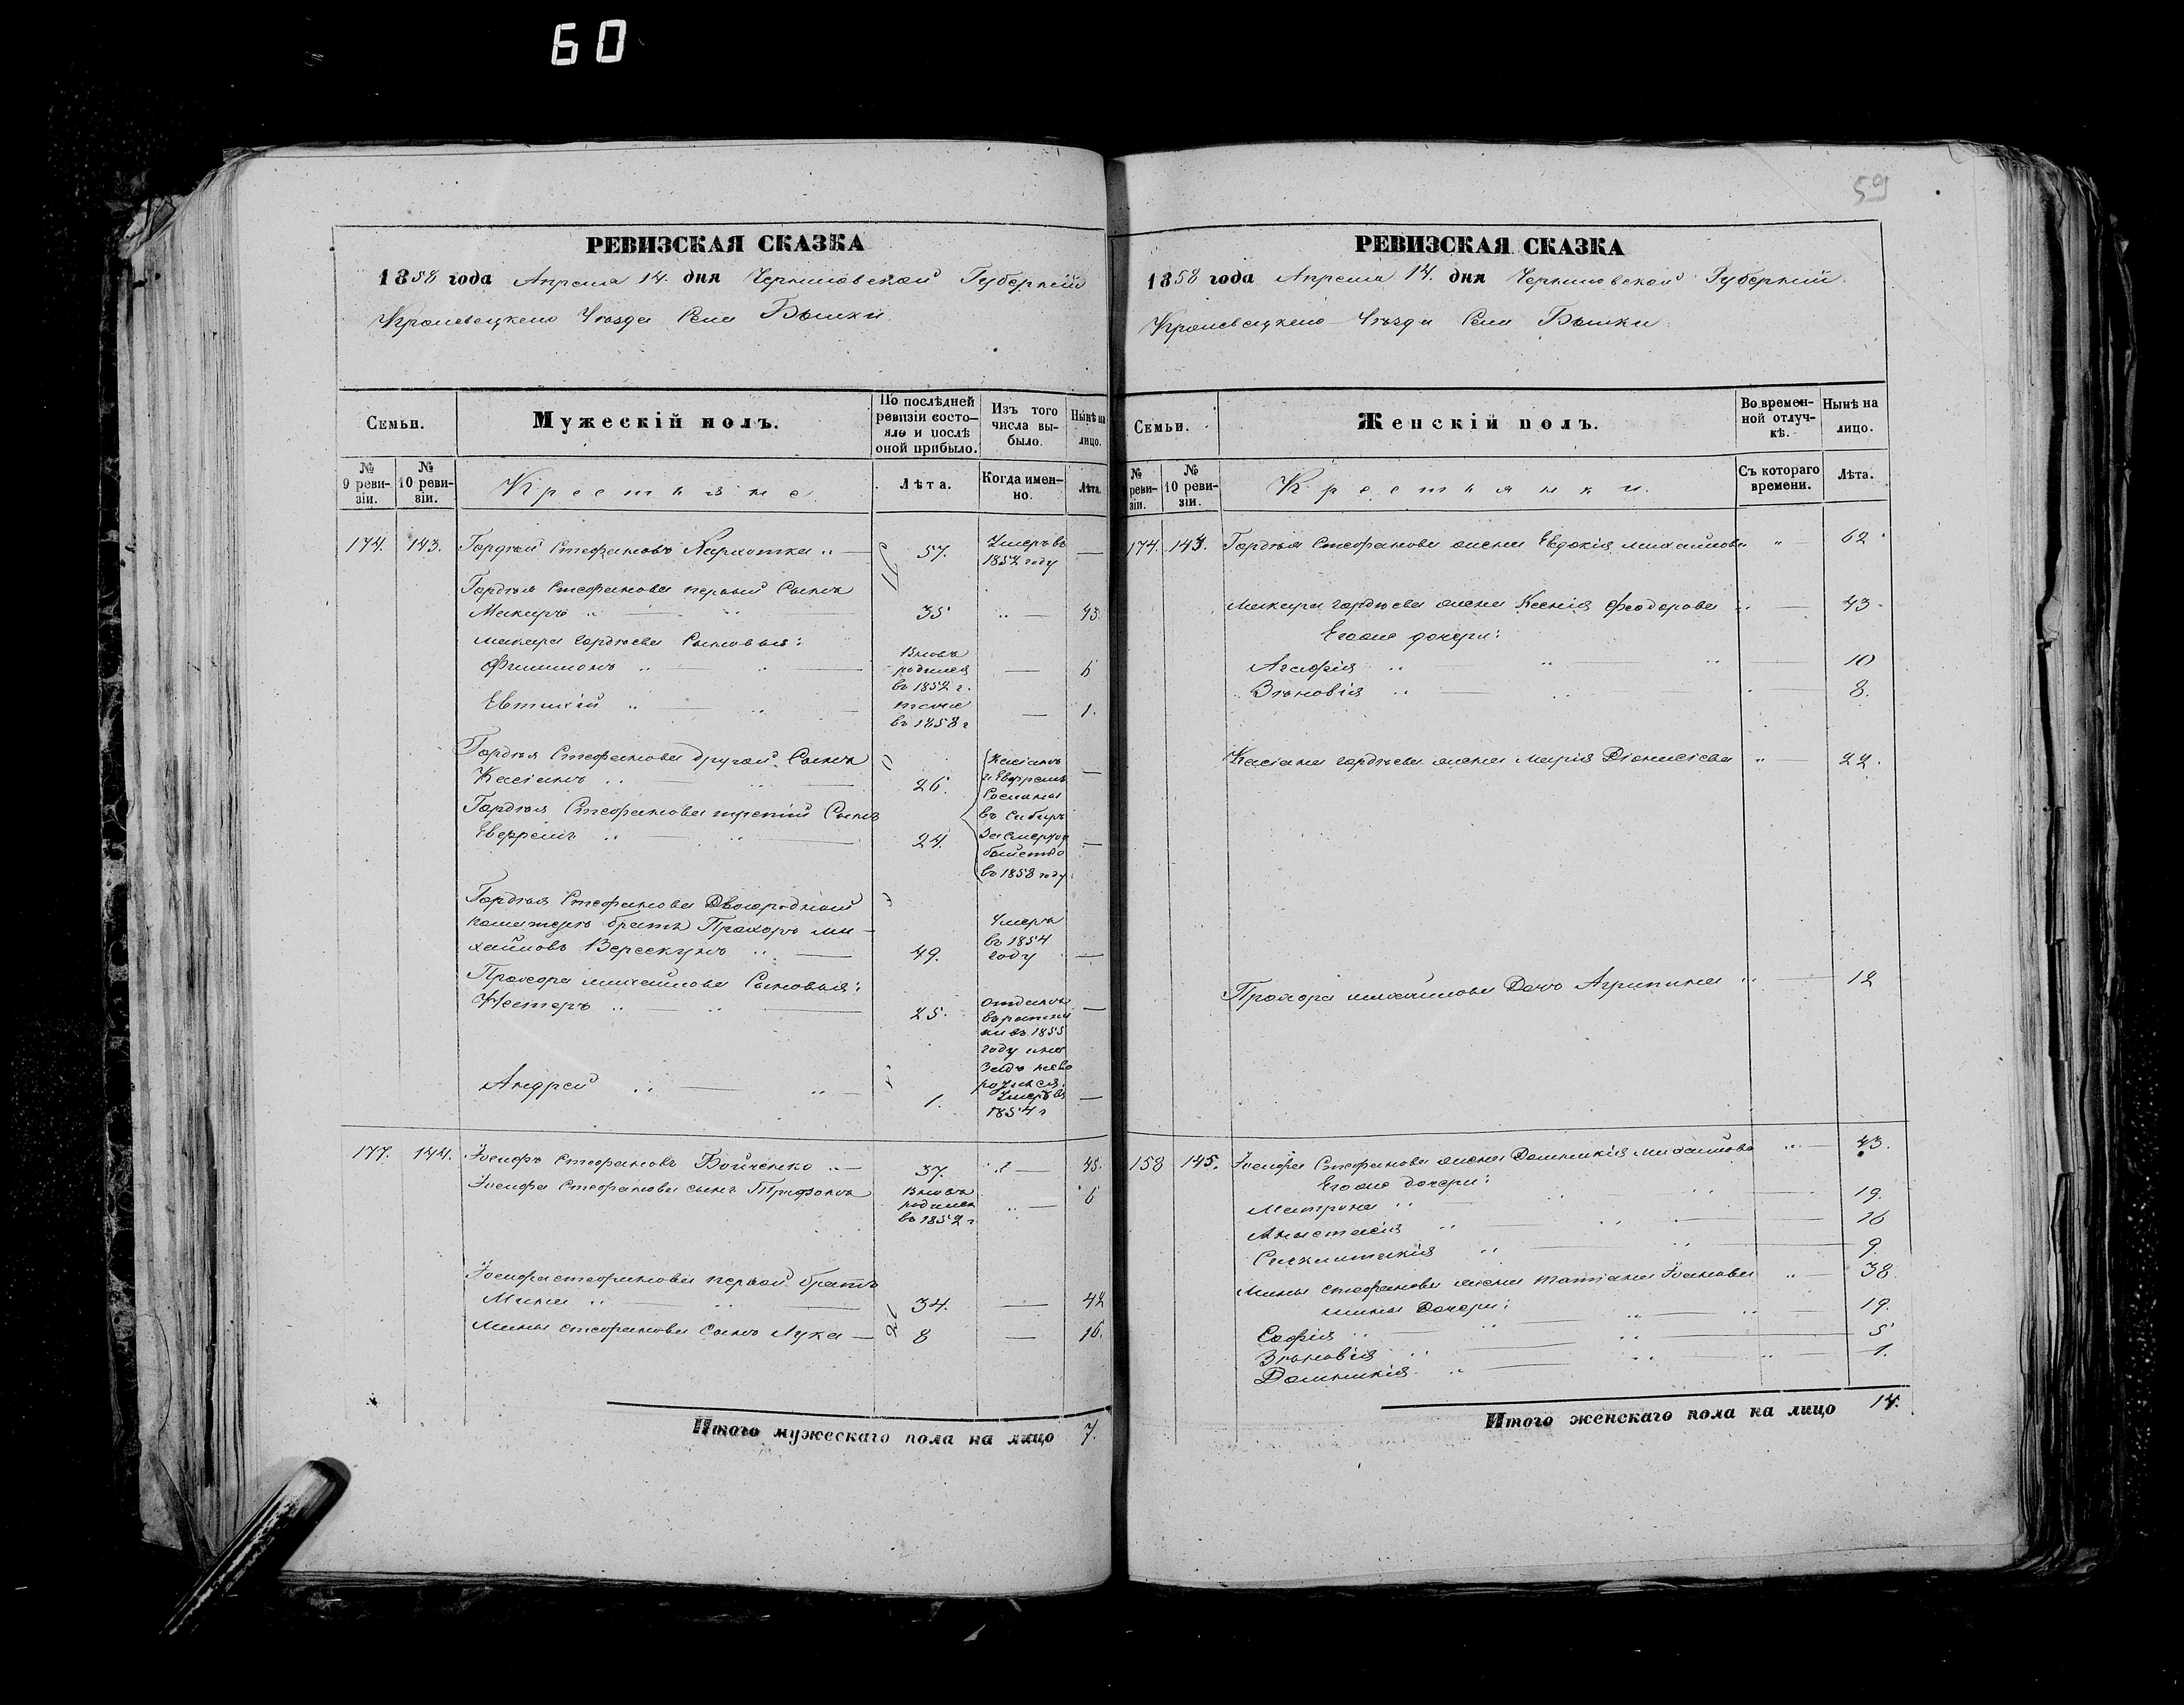 60
РЕВИЗСКАЯ СКАЗКА
1858 года Апреля 14. дня Черниговской Губернiи
Кролевецкаго Уѣзда Села
Семьи.
Мужескiй полъ.
По послѣдней ревизiи состо-
яло и послѣ оной прибыло.
Изъ того числа вы-
было.
Нынѣ на лицо.
№ 9 реви-
зiи.
№ 10 реви-
зiи.
Крестьяне
Лѣта.
Когда имен-
но.
Лѣта.
174. 143. Гордѣй Стефановъ „ 57. Умеръ въ —
1852 году
Гордѣя Стефанова первый Сынъ
Макаръ „ 35 „ — 43.
Макара Гордѣева Сыновья:
Филимонъ „ — „ — Вновь
родился — 6
въ 1852 г.
Евтихiй „ — „ — тоже — 1.
въ 1858 г
Гордѣя Стефанова другой Сынъ
Касiанъ „ — 26. Касiанъ —
и Ефремъ
Сосланы
Гордѣя Стефанова третiй Сынъ въ Сибирь
Ефремъ „ — „ — 24. За смерто —
бiйство
въ 1858 году
Гордѣя Стефанова Двоюродный
братъ Прохоръ Ми-
хайловъ Верескунъ „ — 49. Умеръ
въ 1854
году —
Прохора Михайлова Сыновья:
Несторъ „ — „ — 25. отданъ —
въ ратни
ки въ 1855
году и на
задъ нево
ротился.
Андрей „ — „ — 1. Умеръ въ —
1854 г
177. 144. Iосифъ Стефановъ Бойченко „ — 37. „ — 45.
Iосифа Стефанова сынъ Трифонъ Вновь
родился „ — 6
въ 1852 г
Iосифа Стефанова первой братъ
Мина „ — „ — 34. — 42
Мины Стефанова Сынъ Лука — 8 — 16.
Итого мужескаго пола на лицо 7.
59
РЕВИЗСКАЯ СКАЗКА
1858 года Апреля 14. дня Черниговской Губернiи
Кролевецкаго Уѣзда Села
Семьи.
Женскiй полъ.
Во времен-
ной отлуч-
кѣ.
Нынѣ на лицо.
№ реви-
зiи.
№ 10 реви-
зiи.
Крестьянки.
Съ котораго времени.
Лѣта.
174. 143. Гордѣя Стефанова жена Евдокiя Михайлова „ — 62
Макара Гордѣева жена Ксенiя Феодорова „ — 43.
Егоже дочери:
Агафiя „ „ „ — 10
Зѣновiя „ — „ — 8.
Касiана Гордѣева жена Марiя Дiонисiева „ — 22.
Прохора Михайлова Дочь Агрипина „ — 12
158 145. Iосифа Стефанова жена Домникiя Михайлова „ — 43.
Егоже дочери:
Матрона „ — 19.
Анастасiя „ — 16
„ — 9.
Мины Стефанова жена Татiана Iванова „ — 38.
Мины Дочери:
Софiя „ — 19.
Зѣновiя „ — 5
Домникiя „ — 1.
Итого женскаго пола на лицо 14.